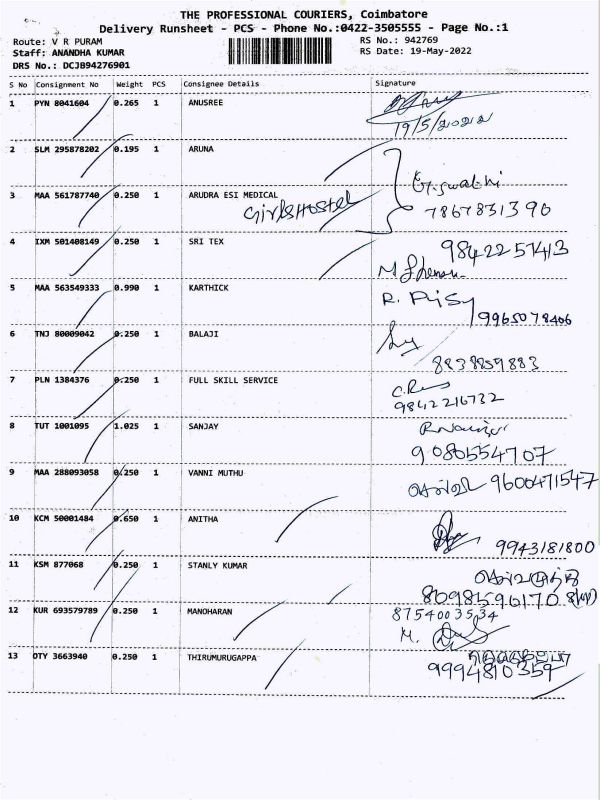 THE PROFESSIONAL COURIERS, Coimbatore
Delivery Runsheet - PCS - Phone No.:0422-3505555 - Page No.:1
Route: V R PURAM
RS No.: 942769
Staff: ANANDHA KUMAR
RS Date: 19-May-2022
DRS No.: DCJB94276901
S No Consignment No Weight PCS Consignee Details Signature
1 PYN 8041604 0.265 1 ANUSREE
19/5/2022
2 SLM 295878202 0.195 1 ARUNA
3 MAA 561787740 0.250 1 ARUDRA ESI MEDICAL
GIRLS HOSTEL
7867831390
4 IXM 501408149 0.250 1 SRI TEX 9842257413
5 MAA 563549333 0.990 1 KARTHICK
9965078406
6 TNJ 80009042 0.250 1 BALAJI
8838859883
7 PLN 1384376 0.250 1 FULL SKILL SERVICE
9842216732
8 TUT 1001095 1.025 1 SANJAY
9080554707
9 MAA 288093058 0.250 1 VANNI MUTHU 9600471547
10 KCM 50001484 0.650 1 ANITHA
9943181800
11 KSM 877068 0.250 1 STANLY KUMAR
8098596170
12 KUR 693579789 0.250 1 MANOHARAN 8754003534
13 OTY 3663940 0.250 1 THIRUMURUGAPPA
9994810359